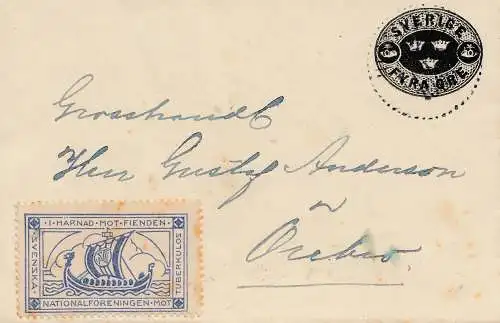 SVERIGE
FYRA ÖRE
Grosshandl.
Herr Gustaf Anderson
Örebro
I HÄRNAD MOT FIENDEN
SVENSKA
TUBERKULOS
NATIONALFÖRENINGEN MOT